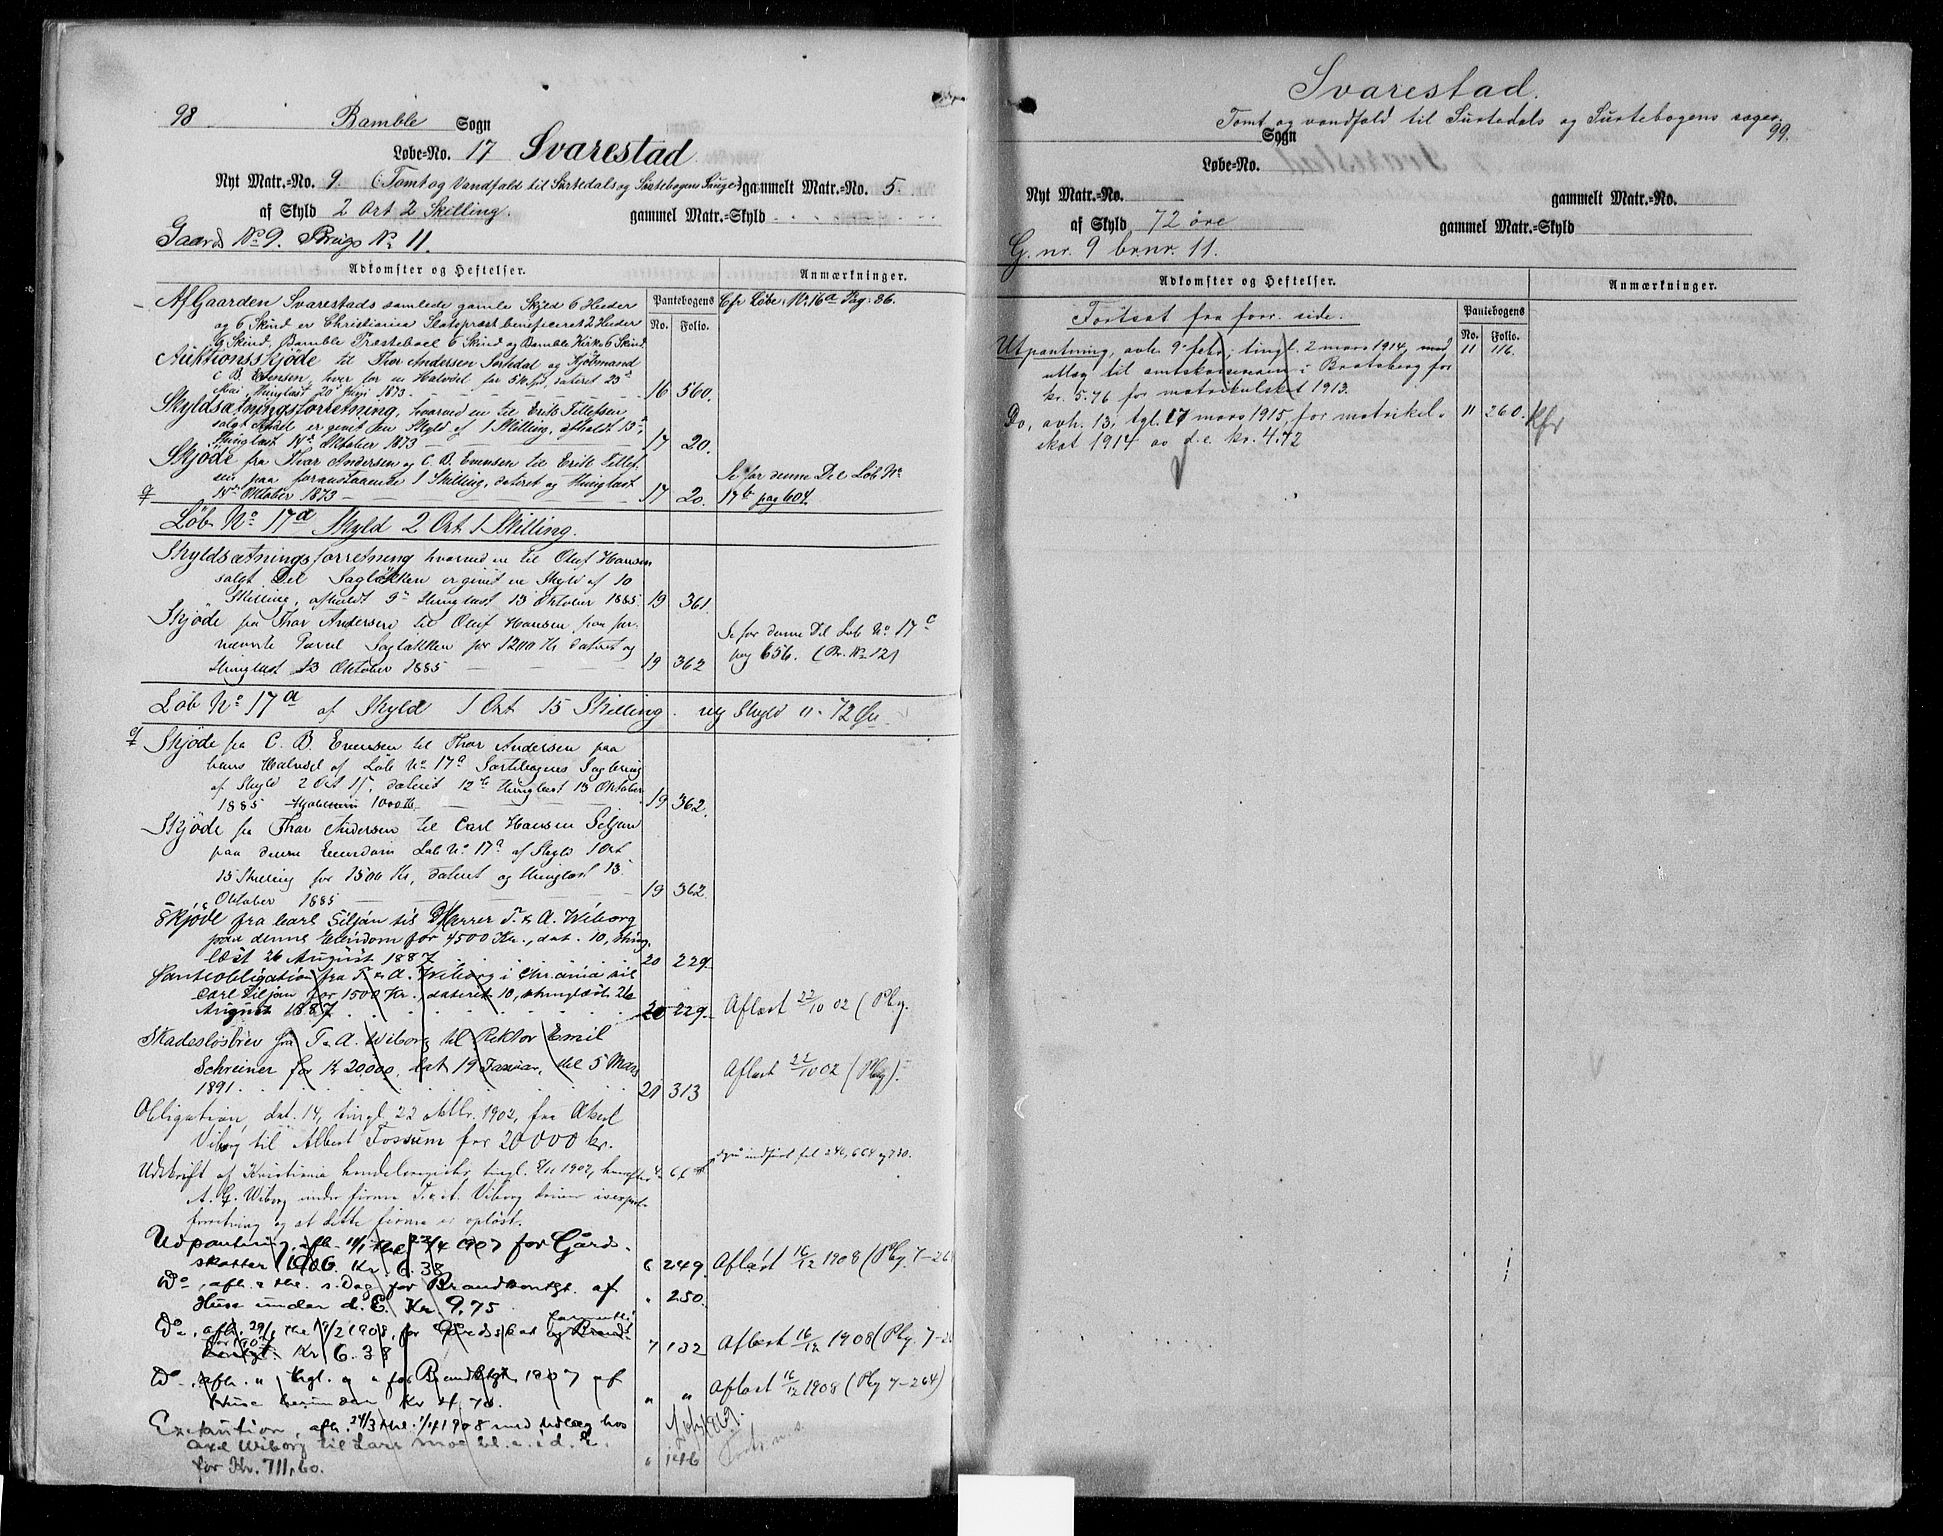 98 Bamble Sogn
Løbe-No. 17 Svarestad
Nyt Matr.-No. 9. (Tomt og Vandfald til Surtedals og Surtebogens Sauge) gammelt Matr.-No. 5.
af Skyld 2 Ort 2 Skilling. gammel Matr.-Skyld
Gaards No 9. Brugs No 11.
Adkomster og Heftelser. Anmærkninger.
Pantebogens
No. Folio.
Af Gaarden Svarestads samlede gamle Skyld 6 Huder Cfr Løbe No 16a Pag. 86.
og 6 Skind er Christiania Slotsprest beneficeret 2 Huder
6 Skind, Bamble Præstebol 6 Skind og Bamble Kirke 6 Skind
Auktionsskjøde til Thor Andersen Surtedal og Kjøbmand
C. B. Evensen, hver for en Halvdel for dateret 23de
Mai, thinglæst 20de Juni 1873 16 560.
Skyldsætningsforretning, hvorved en til Erik Tellefsen
solgt Andel er givet en Skyld af 1 Skilling, afholdt 13de,
thinglæst 14de Oktober 1873 17 20.
Skjøde fra Thor Andersen og C. B. Evensen til Erik Tellef-
sen paa foranstaaende 1 Skilling, dateret og thinglæst
14de Oktober 1873 17 20.
Se for denne Del Løb No
17b pag 604.
Løb No 17a Skyld 2 Ort 1 Skilling.
Skyldsætningsforretning hvorved en til Oluf Hansen
solgt Del Sagløkken er givet en Skyld af 10
Skilling, afholdt 9de thinglæst 13 Oktober 1885 19 361.
Skjøde fra Thor Andersen til Oluf Hansen paa for-
nævnte Parcel Sagløkken for 1200 Kr dateret og
thinglæst 13 Oktober 1885 19 362
Se for denne Del Løb No 17c
pag 656. (Br. No 12)
Løb No 17a af Skyld 1 Ort 15 Skilling. ny Skyld 72 Øre.
Skjøde fra C. B. Evensen til Thor Andersen paa
hans Halvdel af Løb No 17a Surtebogens Sagbrug
af Skyld 2 Ort 1 ß, dateret 12te thinglæst 13 Oktober
1885 Kjøbesum 1000 Kr. 19 362.
Skjøde fra Thor Andersen til Carl Hansen Siljan
paa denne Eiendom Løb No 17a af Skyld 1 Ort
15 Skilling for 1500 Kr, dateret og thinglæst 13
Oktober 1885 19 362
Skjøde fra Carl Siljan til Herrer T. & A. Wiborg
paa denne Eiendom for 4500 Kr., dat. 10, thing-
læst 26 August 1887 20 229.
Panteobligation fra T. & A. Wiborg i Chr.ania til
Carl Siljan for 1500 Kr. dateret 10, thinglæst 26
August 1887 20 229. Aflæst 22/10 02 (Pbg.
Skadesløsbrev fra T. & A. Wiborg til Rektor Emil
Schreiner for Kr 20000, dat 19 Januar, thl 5 Mars
1891. 21 313 Aflæst 22/10 02 (Pbg).
Obligation, dat. 14, tingl. 22 oktbr. 1902, fra Aksel
Viborg til Albert Fossum for 20000 kr.
Udskrift af Kristiania handelsregister, tingl. 1902, hvorefter
A. G. Wiborg under firma T. & A. Viborg driver
forretning og at dette firma er opløst.
Udpantning, afh. thl 23/4 1907 for Gårds-
skatter 1906. Kr. 6.38 6 249. Aflæst 16/12 1908 (Pbg. 7-264
Do, afh. & thl. s. Dag for Brandkontgt. af
Huse under d. E. Kr. 9.75 " 250.
Do, afh. 29/1 thl 1908, for Gårdsskat
for 1907 Kr 6.38 7 132 Aflæst 16/12 1908 (Pbg. 7-26
Do, afh. " tngl. " " for Brandktgt. 1907 af
Huse herunder Kr 4.70. " " Aflæst 16/12 1908 (Pbg 7-264)
Execution, afh. 24/3 thl. 1/4 1908 med Udlæg hos
Axel Wiborg til Lars Moe bl. a. i d. E.
for Kr. 711,60. " 146
Svarestad.
Tomt og vandfald til Surtedals og Surtebogens sager.
99.
Sogn
Løbe-No.
Nyt Matr.-No. gammelt Matr.-No.
af Skyld 72 øre gammel Matr.-Skyld
G. nr. 9 br.nr. 11.
Adkomster og Heftelser. Anmærkninger.
Pantebogens
No. Folio.
Fortsat fra forr. side.
Utpantning, avh. 9 febr, tingl. 2 mars 1914, med 11 116.
utlæg til amtskassereren i Bratsberg for
kr. 5.76 for matrikulskat 1913.
Do, avh. 13, tgl. 17 mars 1915, for matrikel- 11 260. Kfr
skat 1914 av d. e. kr. 4.72